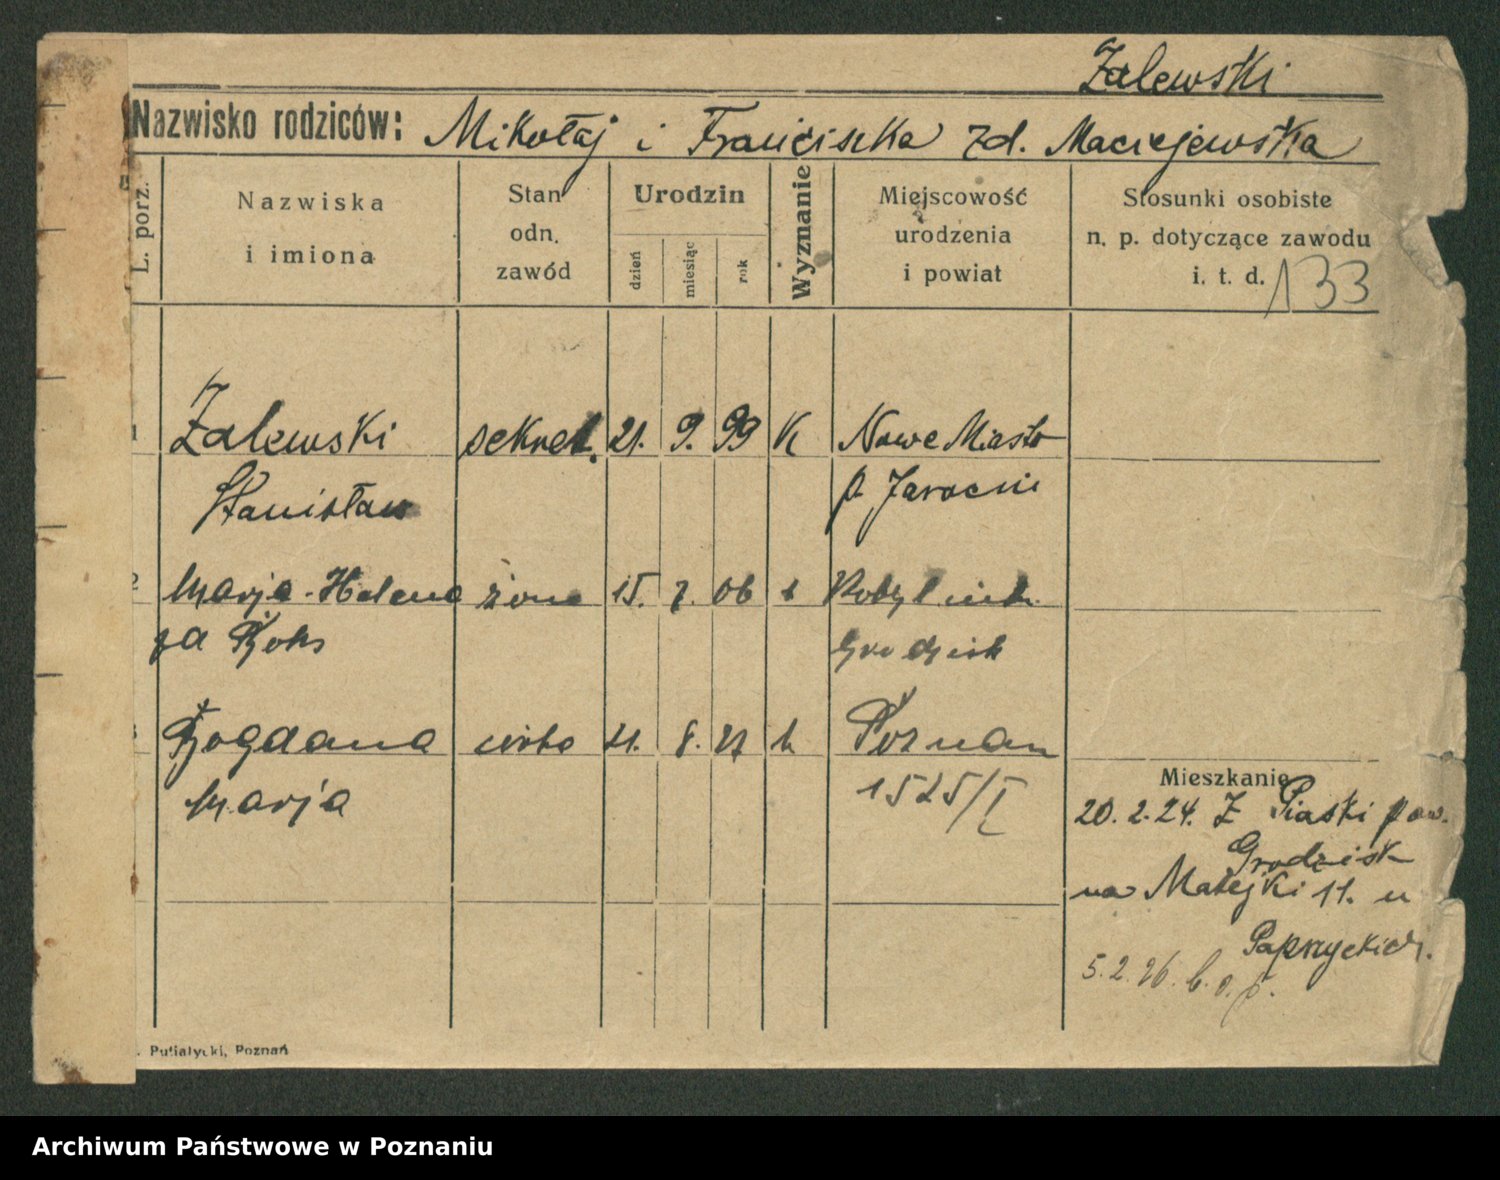 Zalewski
Nazwisko rodziców: Mikołaj i Franciszka zd. Maciejewska
L. porz.
Nazwiska
i imiona
Stan
odn.
zawód
Urodzin
dzień
miesiąc
rok
Wyznanie
Miejscowość
urodzenia
i powiat
Stosunki osobiste
n. p. dotyczące zawodu
i. t. d.
133
1 Zalewski sekret. 21. 9. 99 K Nowe Miasto
Stanisław p Jarocin
2 Marja-Helena żona 15. 7. 06 k Kobylnik
zd Grodzisk
3 Bogdana córka 21. 8. 27 k Poznań
Marja 1525/I
Mieszkanie
20. 2. 24. Z Piaski pow.
Grodzisk
na Matejki 11. u
5. 2. 26. b. o. p.
. Putiatycki, Poznań
Archiwum Państwowe w Poznaniu